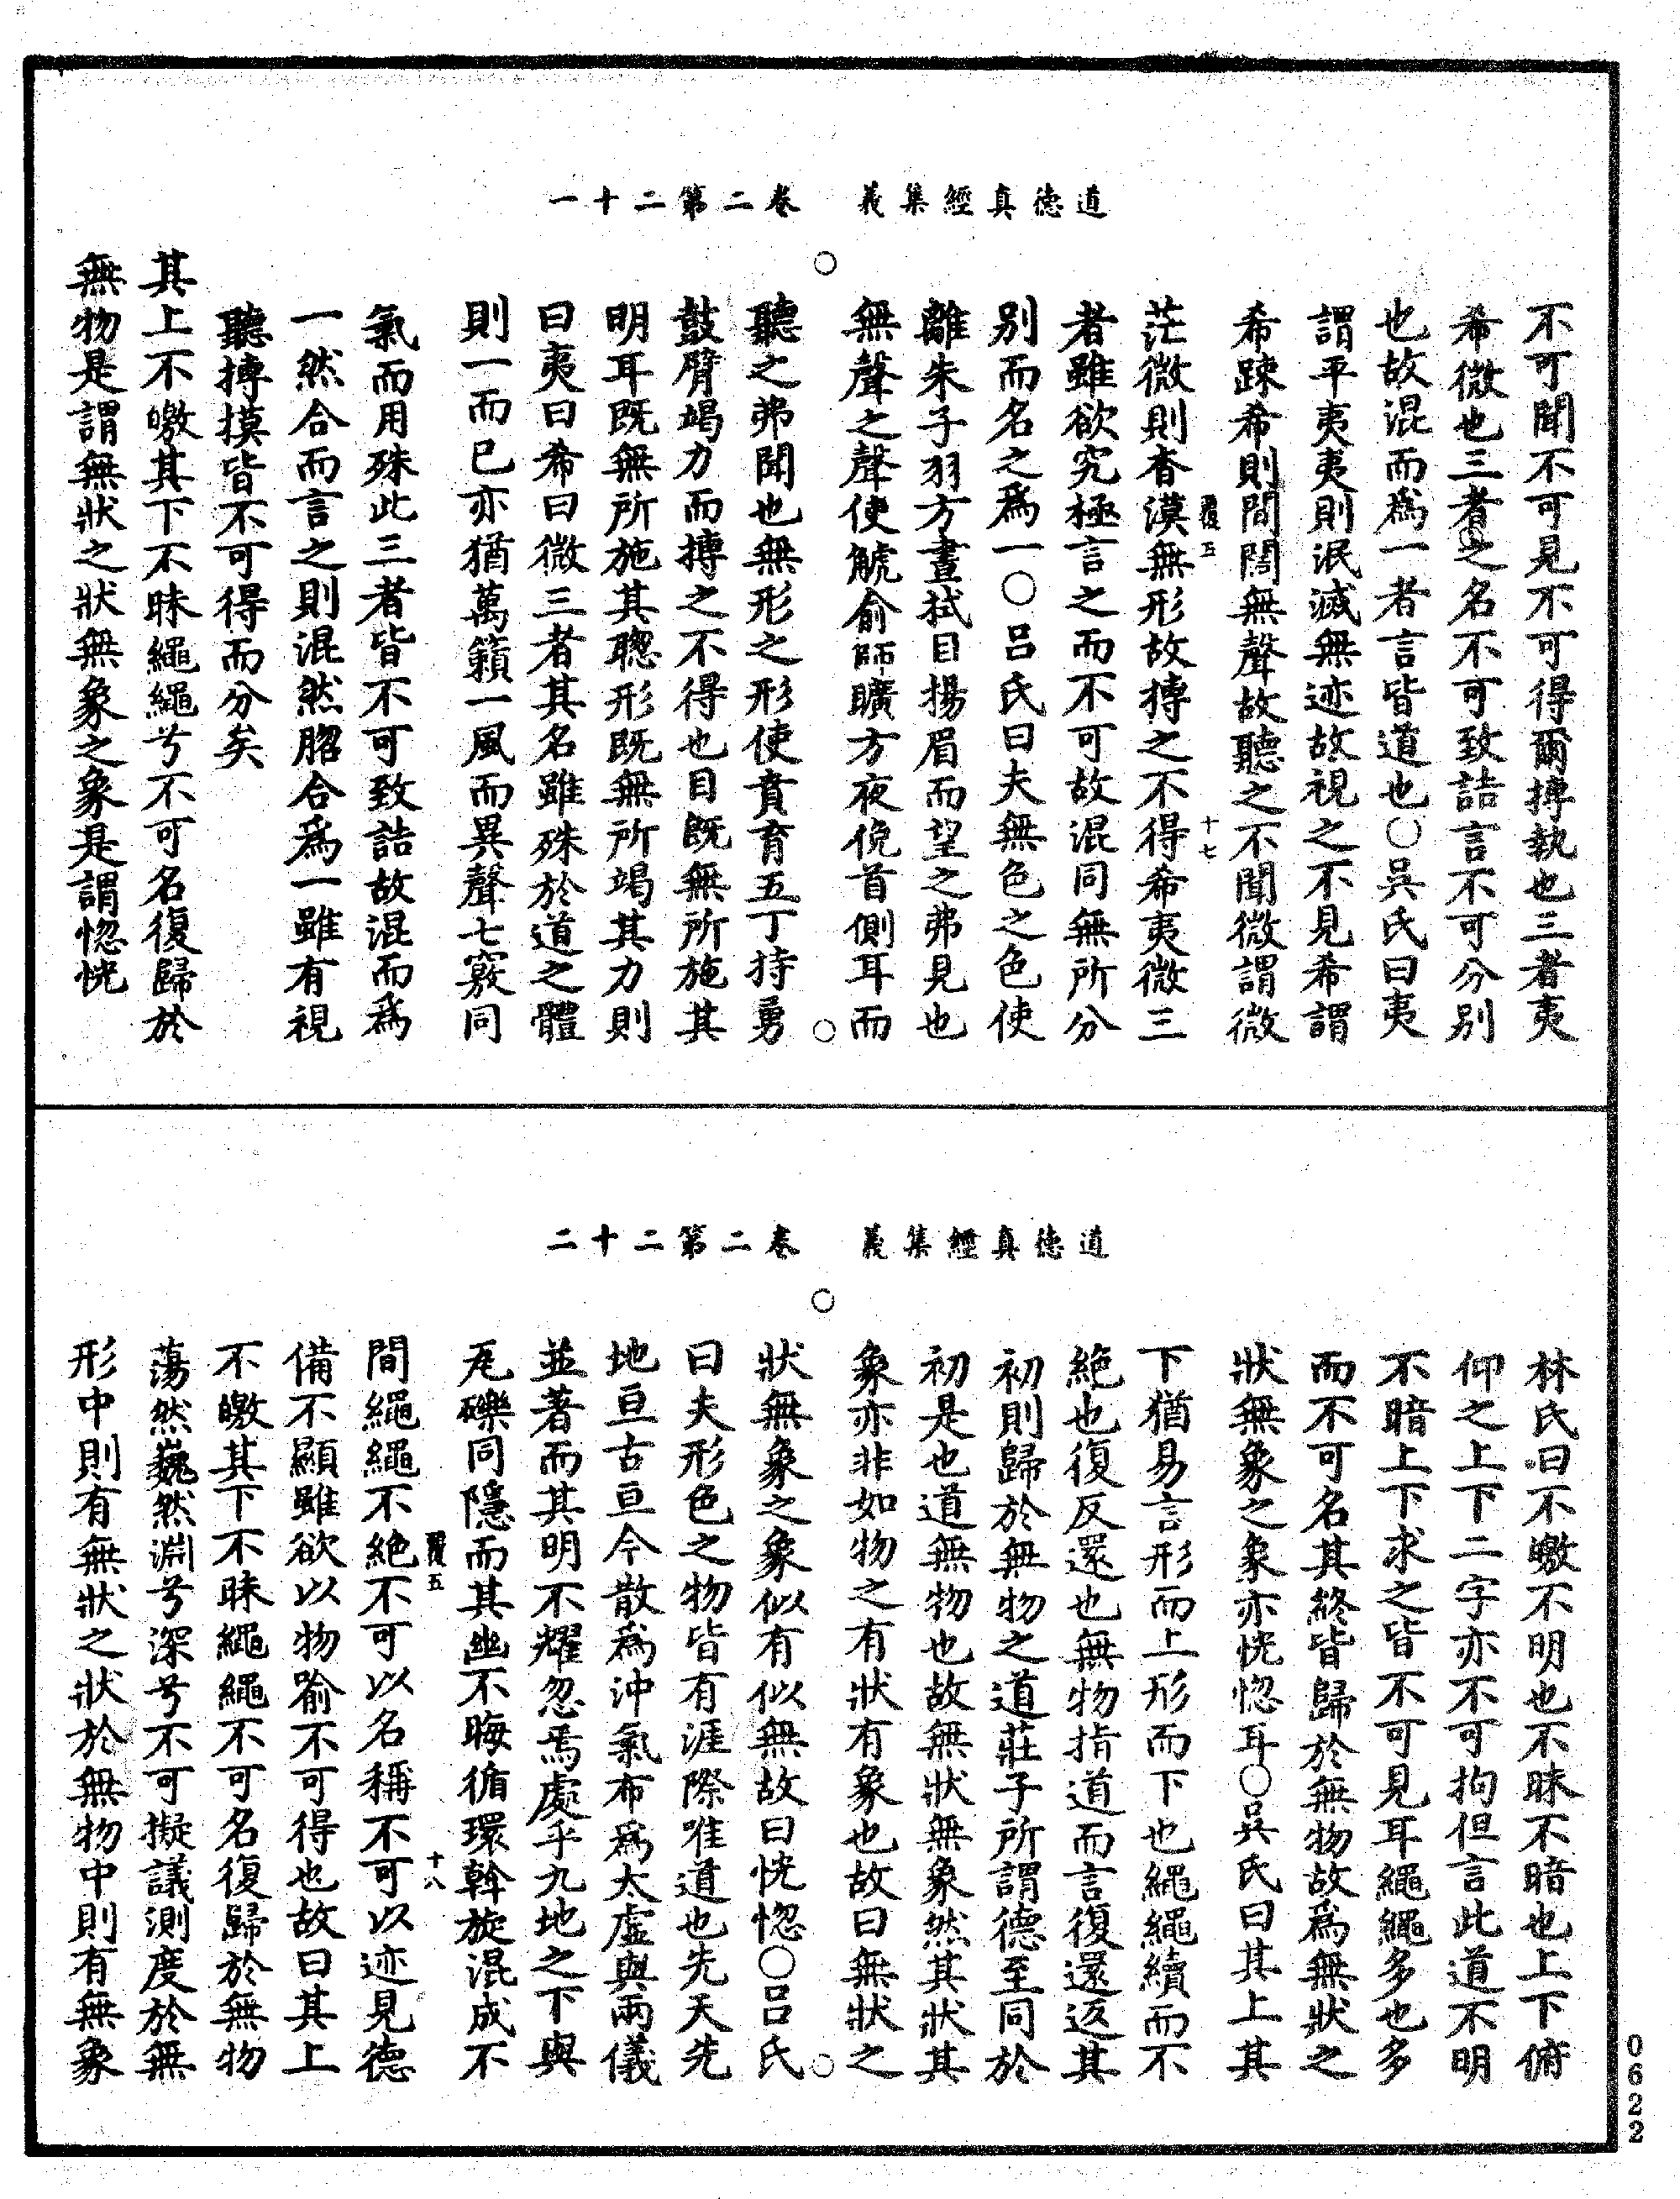 道德真經集義　卷二第二十一
不可聞不可見不可得爾摶執也三者夷
希微也三者之名不可致詰言不可分別
也故混而爲一者言皆道也○吳氏曰夷
謂平夷夷則泯滅無迹故視之不見希謂
希踈希則間闊無聲故聽之不聞微謂微
茫微則杳漠無形故摶之不得希夷微三
者雖欲究極言之而不可故混同無所分
別而名之爲一○呂氏曰夫無色之色使
離朱子羽方晝拭目揚眉而望之弗見也
無聲之聲使䚦俞師曠方夜俛首側耳而
聽之弗聞也無形之形使賁育五丁持勇
鼓臂竭力而摶之不得也目既無所施其
明耳既無所施其聰形既無所竭其力則
曰夷曰希曰微三者其名雖殊於道之體
則一而已亦猶萬籟一風而異聲七竅同
氣而用殊此三者皆不可致詰故混而爲
一然合而言之則混然脗合爲一雖有視
聽摶摸皆不可得而分矣
其上不皦其下不昧繩繩兮不可名復歸於
無物是謂無狀之狀無象之象是謂惚恍
覆五
十七
道德真經集義　卷二第二十二
林氏曰不皦不明也不昧不暗也上下俯
仰之上下二字亦不可拘但言此道不明
不暗上下求之皆不可見耳繩繩多也多
而不可名其終皆歸於無物故爲無狀之
狀無象之象亦恍惚耳○吳氏曰其上其
下猶易言形而上形而下也繩繩續而不
絕也復反還也無物指道而言復還返其
初則歸於無物之道莊子所謂德至同於
初是也道無物也故無狀無象然其狀其
象亦非如物之有狀有象也故曰無狀之
狀無象之象似有似無故曰恍惚○呂氏
曰夫形色之物皆有涯際唯道也先天先
地亘古亘今散爲沖氣布爲太虛與兩儀
並著而其明不耀忽焉處乎九地之下與
瓦礫同隱而其幽不晦循環斡旋混成不
間繩繩不絕不可以名稱不可以迹見德
備不顯雖欲以物喻不可得也故曰其上
不皦其下不昧繩繩不可名復歸於無物
蕩然巍然淵兮深兮不可擬議測度於無
形中則有無狀之狀於無物中則有無象
覆五
十八
0622